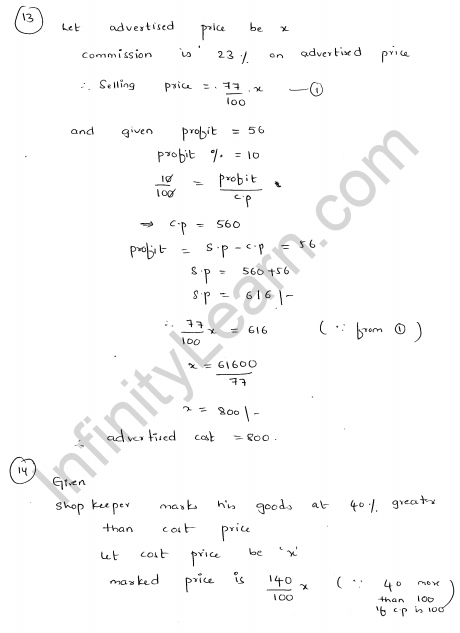 13 Let advertised price be x
commission is 23% on advertised price
∴ Selling price = 77/100 . x — ①
and given profit = 56
profit % = 10
10/100 = profit/c.p
⇒ c.p = 560
profit = s.p - c.p = 56
s.p = 560+56
s.p = 616/-
∴ 77/100 x = 616 (∵ from ①)
x = 61600/77
x = 800/-
∴ advertised cost = 800.
14 Given
Shop keeper marks his goods at 40% greater
than cost price
Let cost price be 'x'
marked price is 140/100 x (∵ 40 more
than 100
if c.p is 100)
InfinityLearn.com